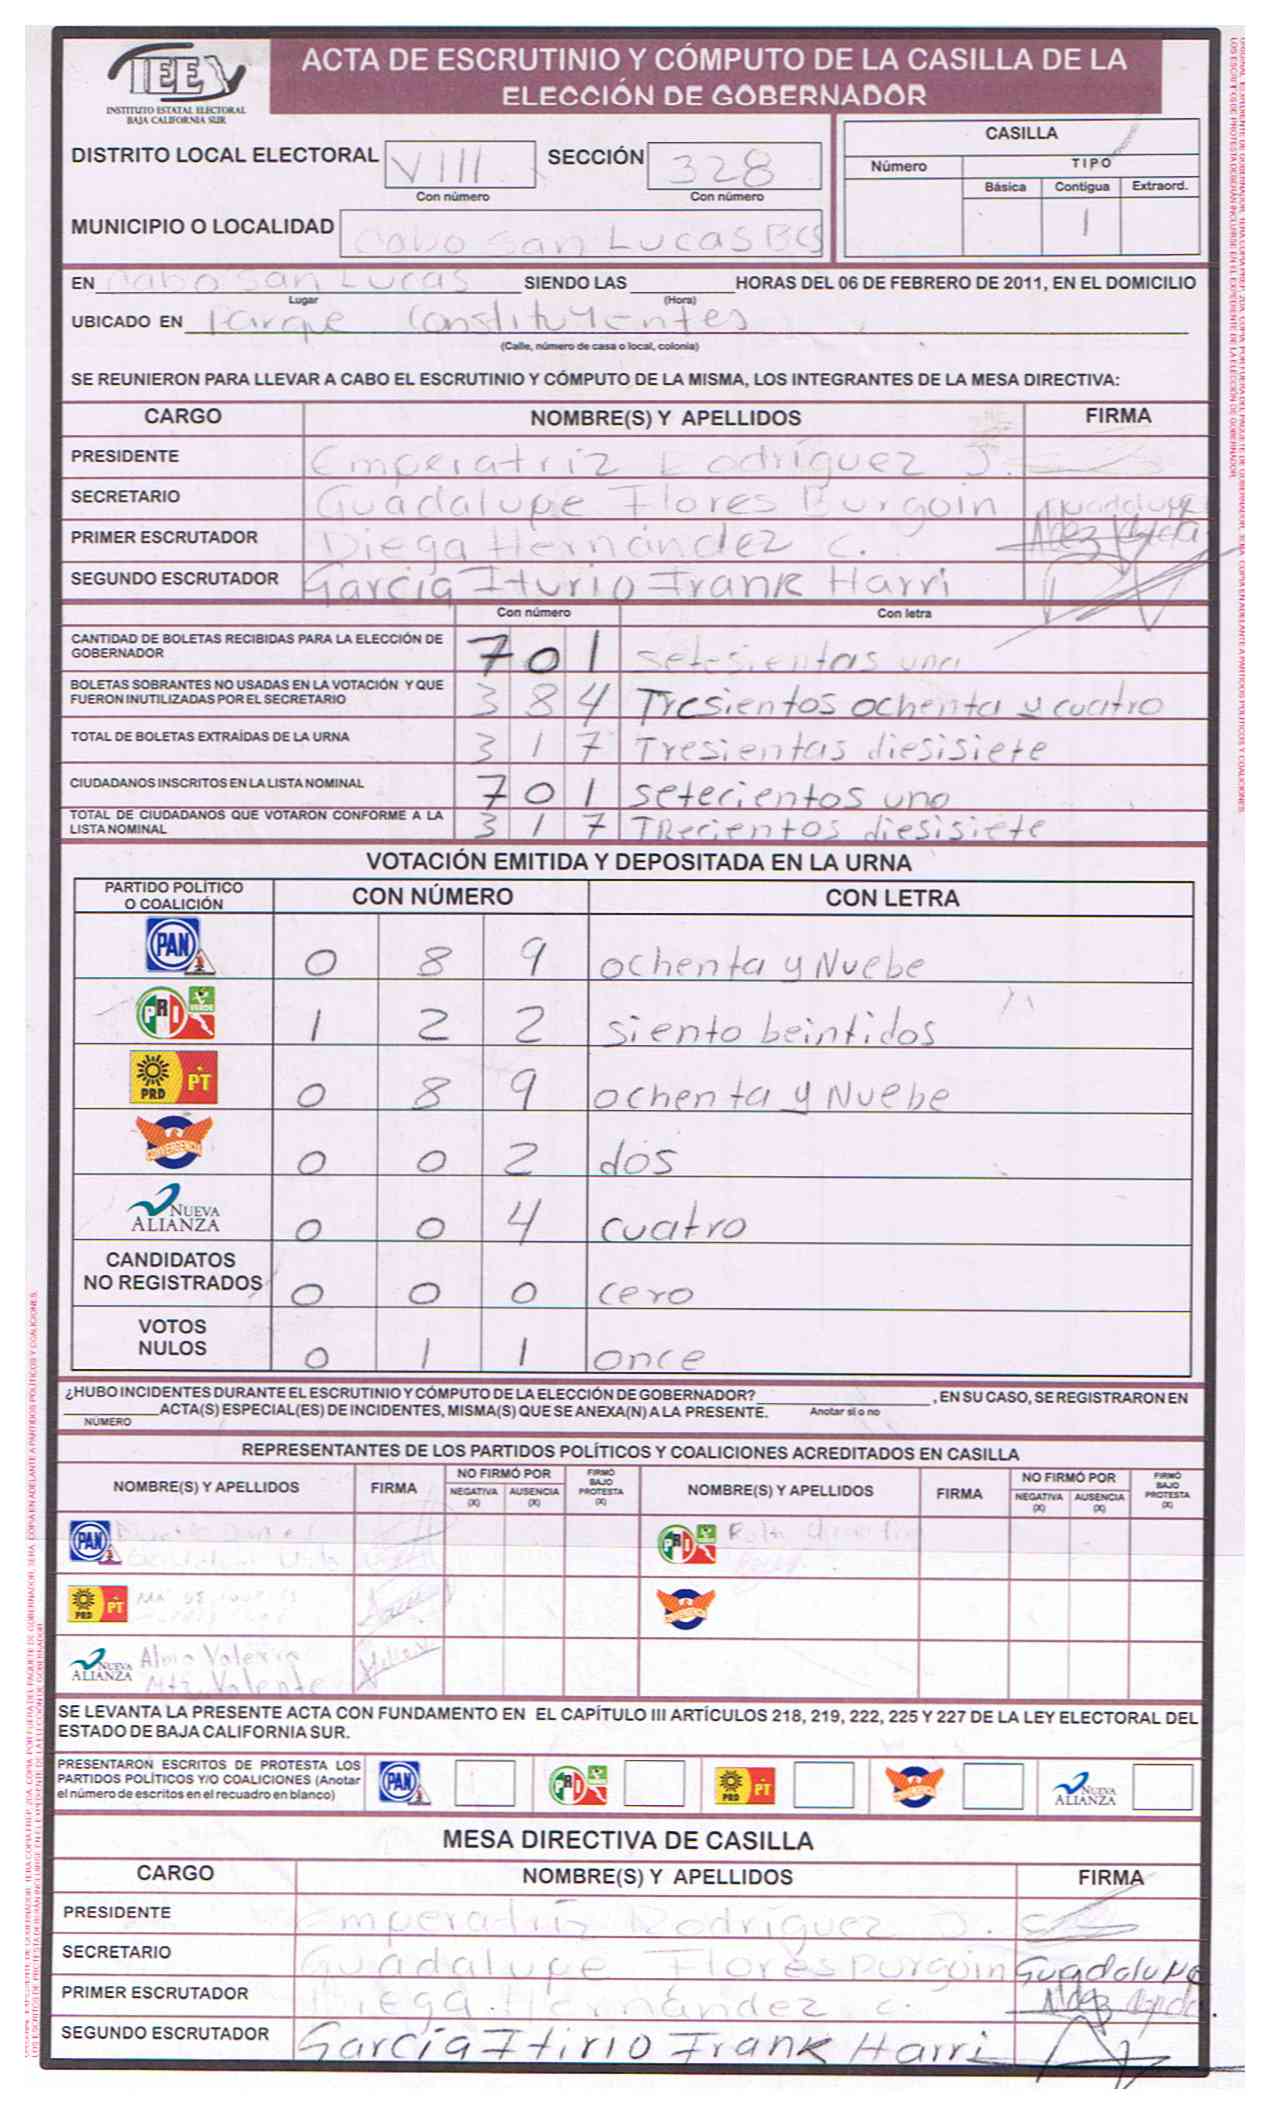 IEE
INSTITUTO ESTATAL ELECTORAL
BAJA CALIFORNIA SUR
ACTA DE ESCRUTINIO Y CÓMPUTO DE LA CASILLA DE LA
ELECCIÓN DE GOBERNADOR
DISTRITO LOCAL ELECTORAL VIII SECCIÓN 328
Con número Con número
CASILLA
Número TIPO
Básica Contigua Extraord.
1
MUNICIPIO O LOCALIDAD Cabo San Lucas BCS
EN Cabo San Lucas SIENDO LAS HORAS DEL 06 DE FEBRERO DE 2011, EN EL DOMICILIO
Lugar (Hora)
UBICADO EN Parque Constituyentes
(Calle, número de casa o local, colonia)
SE REUNIERON PARA LLEVAR A CABO EL ESCRUTINIO Y CÓMPUTO DE LA MISMA, LOS INTEGRANTES DE LA MESA DIRECTIVA:
CARGO NOMBRE(S) Y APELLIDOS FIRMA
PRESIDENTE Emperatriz Rodríguez J.
SECRETARIO Guadalupe Flores Burgoin Guadalupe
PRIMER ESCRUTADOR Diega Hernández C.
SEGUNDO ESCRUTADOR García Iturio Frank Harri
Con número Con letra
CANTIDAD DE BOLETAS RECIBIDAS PARA LA ELECCIÓN DE
GOBERNADOR 701 setesientas una
BOLETAS SOBRANTES NO USADAS EN LA VOTACIÓN Y QUE
FUERON INUTILIZADAS POR EL SECRETARIO 384 Tresientos ochenta y cuatro
TOTAL DE BOLETAS EXTRAÍDAS DE LA URNA 317 Tresientas diesisiete
CIUDADANOS INSCRITOS EN LA LISTA NOMINAL 701 setecientos uno
TOTAL DE CIUDADANOS QUE VOTARON CONFORME A LA
LISTA NOMINAL 317 TRecientos diesisiete
VOTACIÓN EMITIDA Y DEPOSITADA EN LA URNA
PARTIDO POLÍTICO
O COALICIÓN CON NÚMERO CON LETRA
PAN 0 8 9 ochenta y Nuebe
PRI VERDE 1 2 2 siento beintidos
PRD PT 0 8 9 ochenta y Nuebe
CONVERGENCIA 0 0 2 dos
NUEVA
ALIANZA 0 0 4 cuatro
CANDIDATOS
NO REGISTRADOS 0 0 0 cero
VOTOS
NULOS 0 1 1 once
¿HUBO INCIDENTES DURANTE EL ESCRUTINIO Y CÓMPUTO DE LA ELECCIÓN DE GOBERNADOR? , EN SU CASO, SE REGISTRARON EN
ACTA(S) ESPECIAL(ES) DE INCIDENTES, MISMA(S) QUE SE ANEXA(N) A LA PRESENTE. Anotar sí o no
NÚMERO
REPRESENTANTES DE LOS PARTIDOS POLÍTICOS Y COALICIONES ACREDITADOS EN CASILLA
NOMBRE(S) Y APELLIDOS FIRMA NO FIRMÓ POR NEGATIVA (X) AUSENCIA (X) FIRMÓ BAJO PROTESTA (X) NOMBRE(S) Y APELLIDOS FIRMA NO FIRMÓ POR NEGATIVA (X) AUSENCIA (X) FIRMÓ BAJO PROTESTA (X)
PAN PRI
PRD PT
NUEVA
ALIANZA Alma Valeria
Mtz. Valente
SE LEVANTA LA PRESENTE ACTA CON FUNDAMENTO EN EL CAPÍTULO III ARTÍCULOS 218, 219, 222, 225 Y 227 DE LA LEY ELECTORAL DEL
ESTADO DE BAJA CALIFORNIA SUR.
PRESENTARON ESCRITOS DE PROTESTA LOS
PARTIDOS POLÍTICOS Y/O COALICIONES (Anotar
el número de escritos en el recuadro en blanco)
PAN PRI PRD PT NUEVA ALIANZA
MESA DIRECTIVA DE CASILLA
CARGO NOMBRE(S) Y APELLIDOS FIRMA
PRESIDENTE Emperatriz Rodríguez J.
SECRETARIO Guadalupe Flores Burgoin Guadalupe
PRIMER ESCRUTADOR Diega Hernández C.
SEGUNDO ESCRUTADOR García Itirio Frank Harri